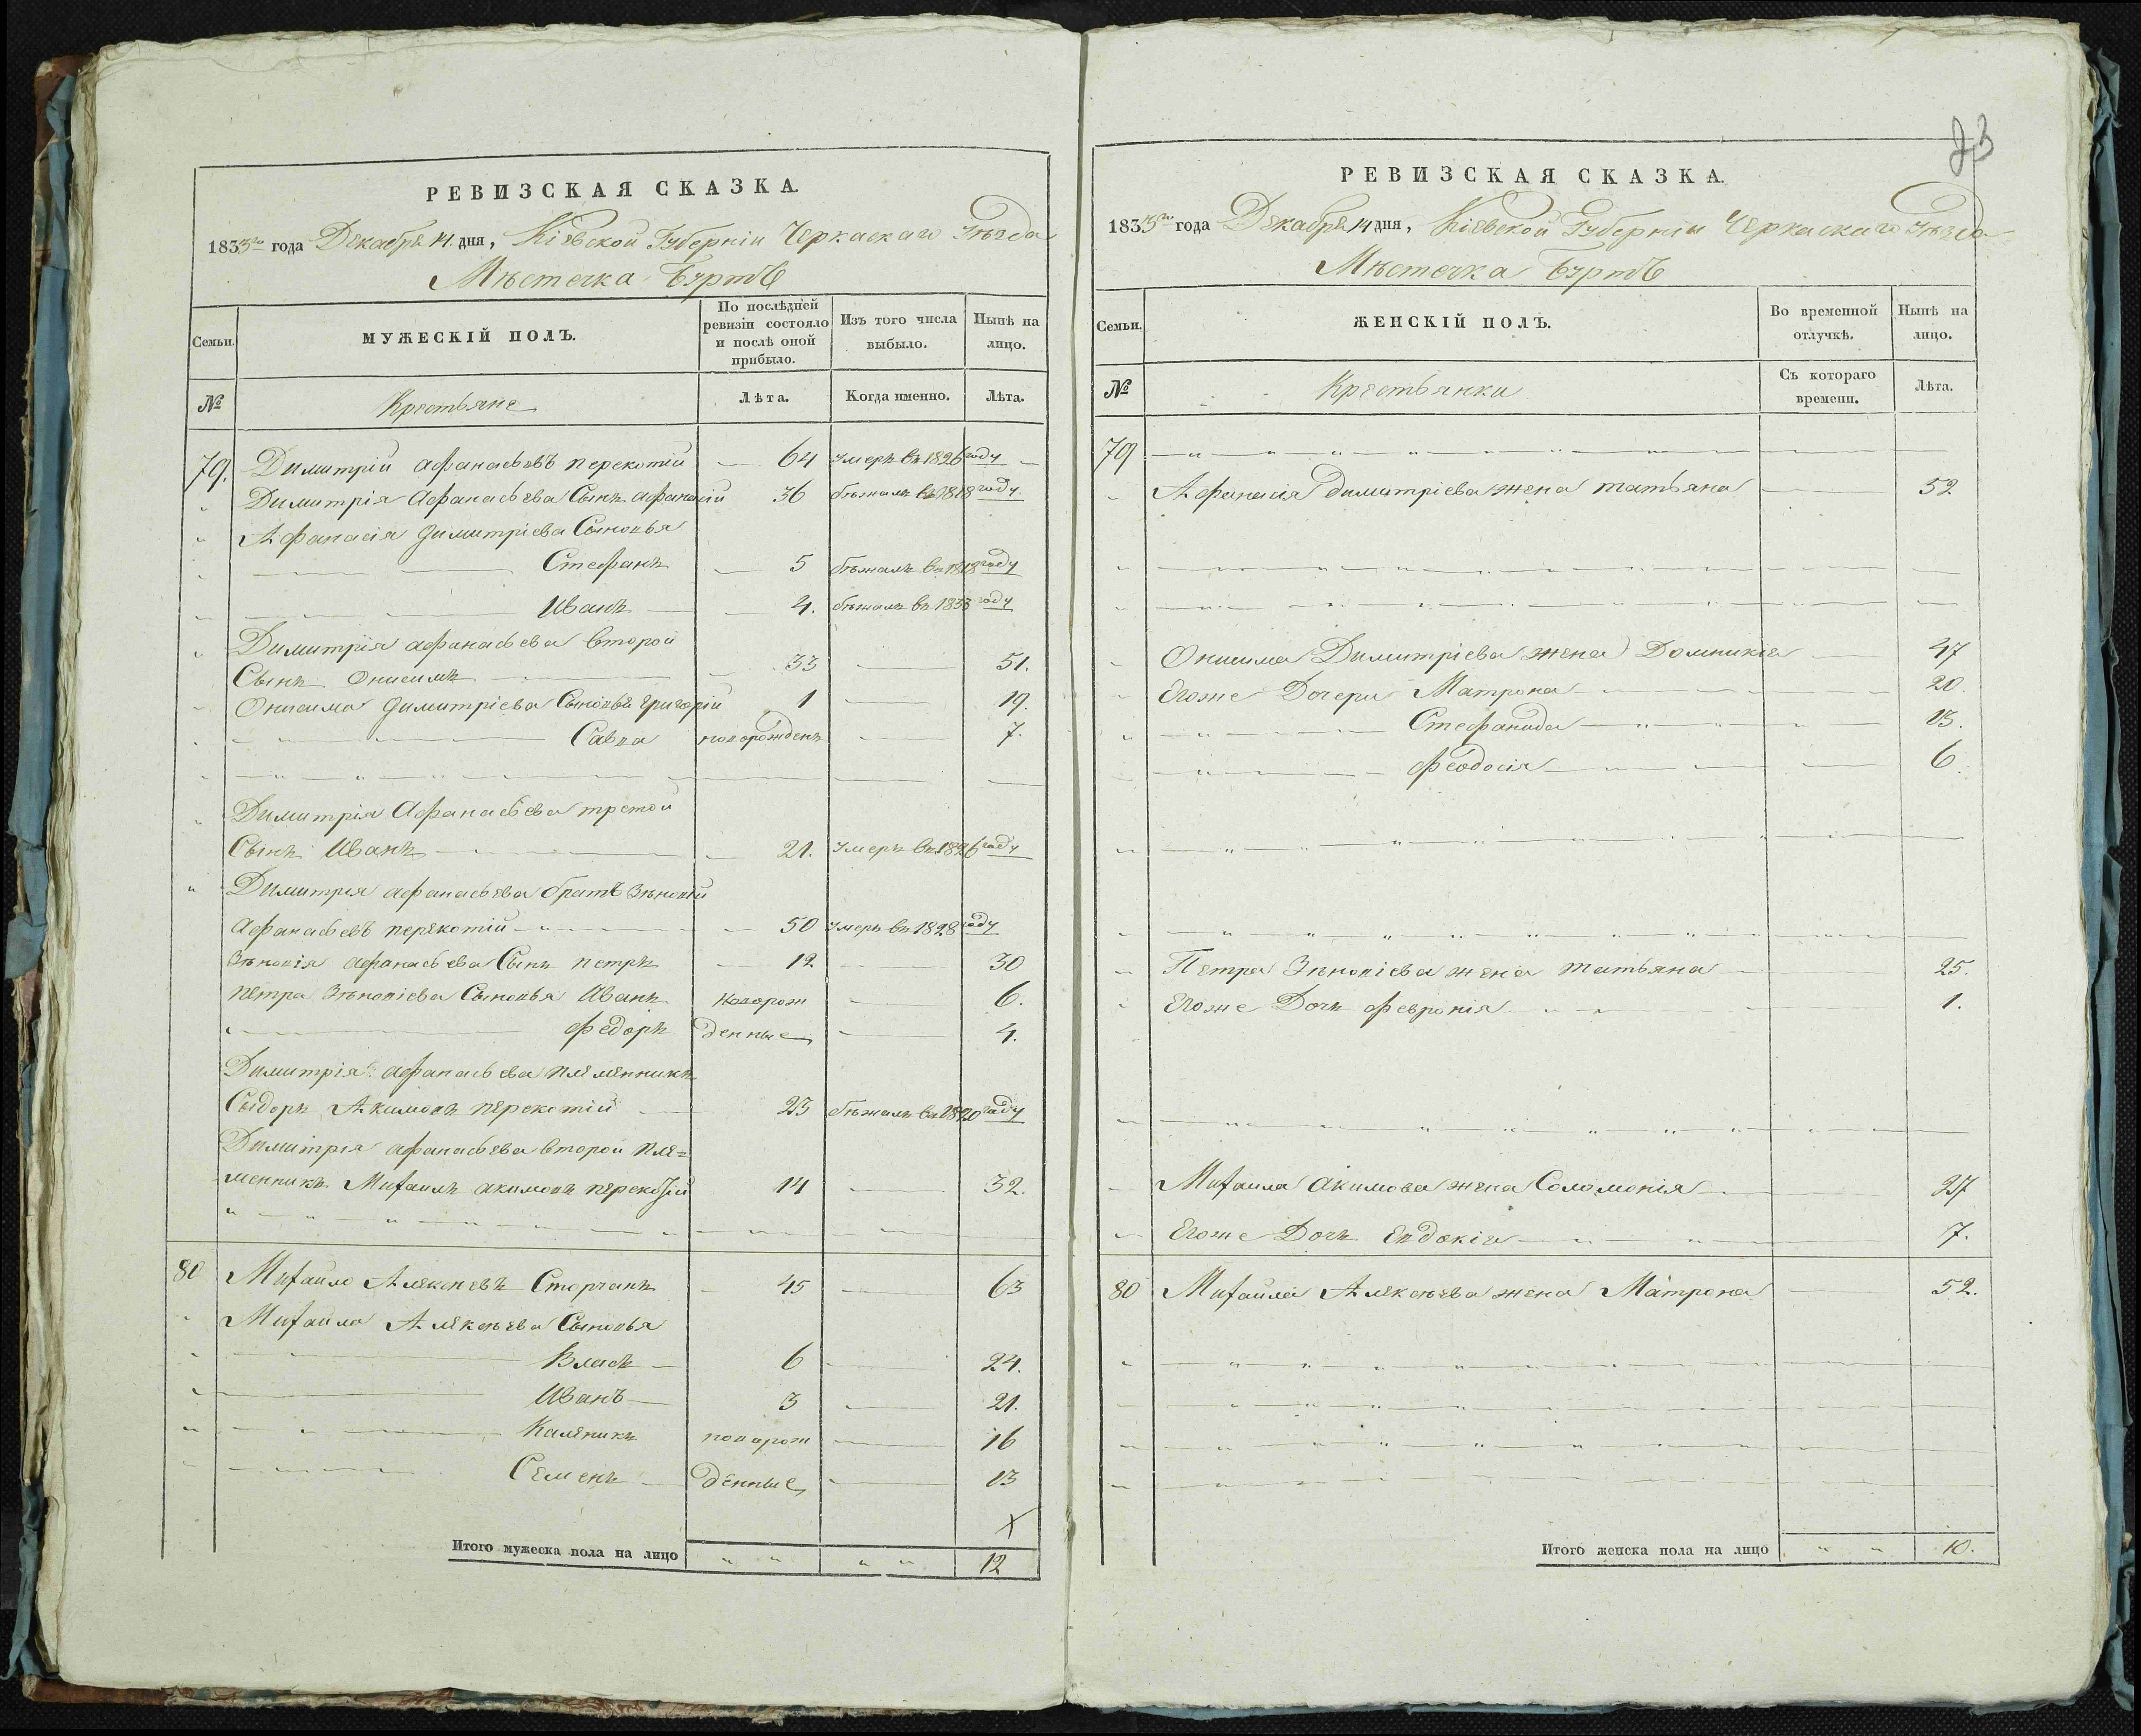 РЕВИЗСКАЯ СКАЗКА.
1833го года Декабря 14 дня, Кіевской Губерніи Черкаскаго Уѣзда
Мѣстечка Буртъ
Семьи.
МУЖЕСКІЙ ПОЛЪ.
По послѣдней ревизіи состояло и послѣ оной прибыло.
Изъ того числа выбыло.
Нынѣ на лицо.
№
Крестьяне
Лѣта.
Когда именно.
Лѣта.
79. Димитрій Афанасьевъ Перекотій 64 умеръ въ 1826 году
Димитрія Афанасьева Сынъ Афанасій 36 бѣжалъ въ 1818 году
Афанасія Димитріева Сыновья
Стефанъ 5 бѣжалъ въ 1818 году
Иванъ 4. бѣжалъ въ 1833 году
Димитрія Афанасьева второй
Сынъ Онисимъ 33 51.
Онисима Димитріева Сыновья Григорій 1 19.
Савва новорожденъ 7.
Димитрія Афанасьева третой
Сынъ Иванъ 21. умеръ въ 1826 году
Димитрія Афанасьева братъ Зѣновій
Афанасьевъ Перекотій 50 умеръ въ 1828 году
Зѣновія Афанасьева Сынъ Петръ 12 30
Петра Зѣновіева Сыновья Иванъ новорож 6.
Федоръ денные 4.
Димитрія Афанасьева племенникъ
Сыдоръ Акимовъ Перекотій 23 бѣжалъ въ 1820 году
Димитрія Афанасьева второй пле=
менникъ Михаилъ Акимовъ Перекотій 14 32.
80 Михайло Алексѣевъ Сторчакъ 45 63
Михайла Алексѣева Сыновья
Власъ 6 24.
Иванъ 3 21.
Каленикъ новорож 16
Семенъ денные 13
Х
Итого мужеска пола на лицо 12
23
РЕВИЗСКАЯ СКАЗКА.
1833го года Декабря 14 дня, Кіевской Губерніи Черкаскаго Уѣзда
Мѣстечка Буртъ
Семьи.
ЖЕНСКІЙ ПОЛЪ.
Во временной отлучкѣ.
Нынѣ на лицо.
№
Крестьянки
Съ котораго времени.
Лѣта.
79
Афанасія Димитріева жена Татьяна 52
Онисима Димитріева жена Домникія 47
Егоже Дочери Матрона 20.
Стефанида 13.
Феодосія 6
Петра Зѣновіева жена Татьяна 25.
Егоже Дочь Февронія 1.
Михаила Акимова жена Соломонія 27
Егоже Дочь Евдокія 7.
80 Михайла Алексѣева жена Матрона 52.
Итого женска пола на лицо 10.